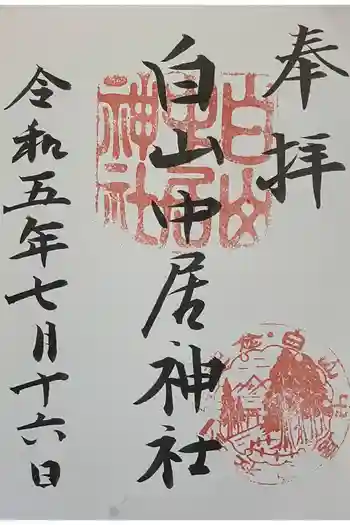 奉拝
白山中居神社
令和五年七月十六日
白山
中居
神社